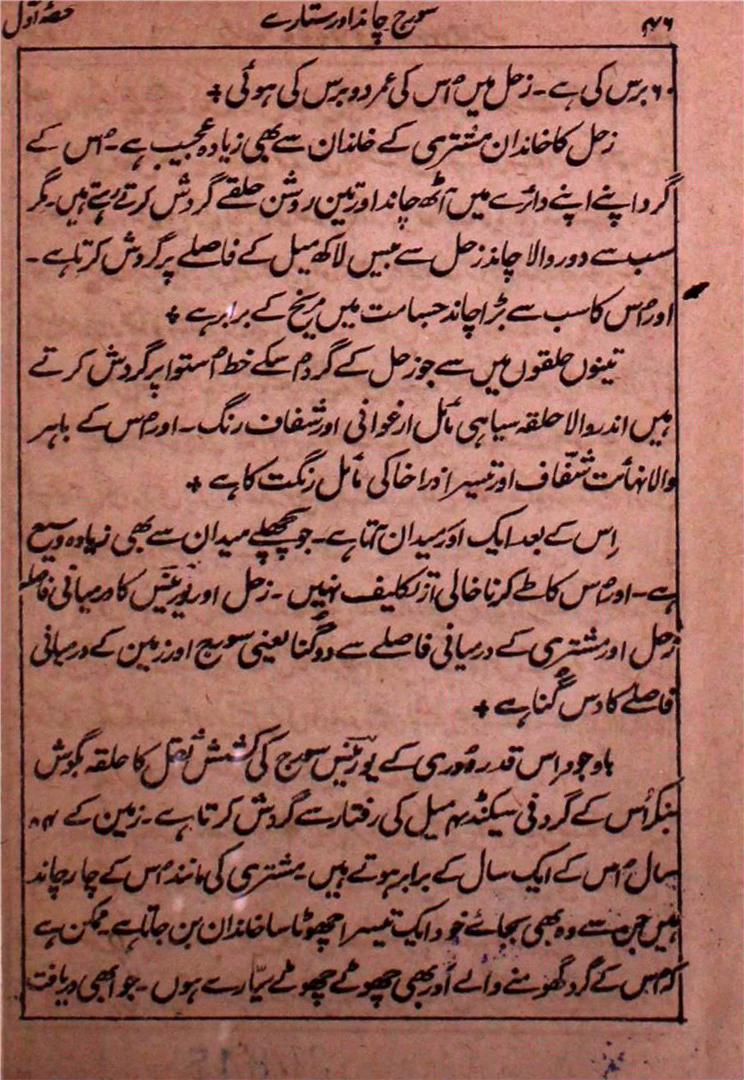 ۴۶ سورج چاند اور ستارے حصۂ اوّل
۶۰ برس کی ہے۔ زحل میں اُس کی عمر دو برس کی ہوئی +
زحل کا خاندان مشتری کے خاندان سے بھی زیادہ عجیب ہے۔ اُس کے
گرد اپنے اپنے دائرے میں آٹھ چاند اور تین روشن حلقے گردش کرتے رہتے ہیں۔ مگر
سب سے دور والا چاند زحل سے بیس لاکھ میل کے فاصلے پر گردش کرتا ہے۔
اور اُس کا سب سے بڑا چاند جسامت میں مریخ کے برابر ہے +
تینوں حلقوں میں سے جو زحل کے گرد اُسکے خط اُستوا پر گردش کرتے
ہیں اندر والا حلقہ سیاہی مائل ارغوانی اور شفاف رنگ۔ اور اُس کے باہر
والا نہائت شفّاف اور تیسرا ذرا خاکی مائل رنگت کا ہے +
اِس کے بعد ایک اَور میدان آتا ہے۔ جو پچھلے میدان سے بھی زیادہ وسیع
ہے۔ اور اُس کا طے کرنا خالی از تکلیف نہیں۔ زحل اور یُورینَس کا درمیانی فاصلہ
زحل اور مشتری کے درمیانی فاصلے سے دوگُنا یعنی سورج اور زمین کے درمیانی
فاصلے کا دس گُنا ہے +
باوجود اِس قدر دُوری کے یورینَس سورج کی کشش ثقل کا حلقہ بگوش
بنکر اُس کے گرد فی سیکنڈ ۴ میل کی رفتار سے گردش کرتا ہے۔ زمین کے ۸۴
سال اُس کے ایک سال کے برابر ہوتے ہیں۔ مشتری کی مانند اُس کے چار چاند
ہیں جن سے وہ بھی بجائے خود ایک تیسرا چھوٹا سا خاندان بن جاتا ہے۔ ممکن ہے
کہ اُس کے گرد گھومنے والے اَور بھی چھوٹے چھوٹے سیّارے ہوں۔ جو ابھی دریافت